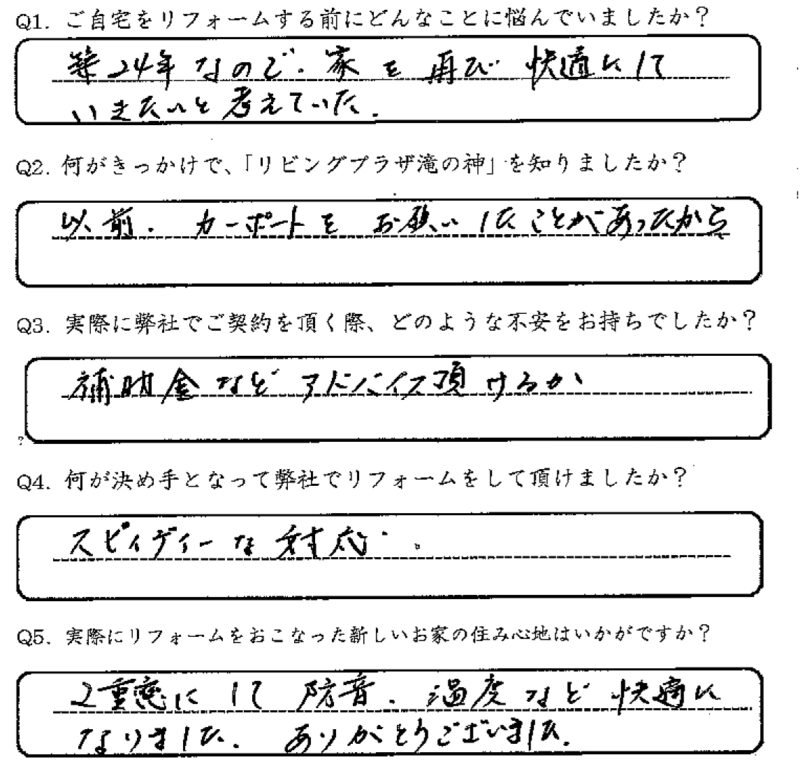 Q1. ご自宅をリフォームする前にどんなことに悩んでいましたか?
築24年なので、家を再び快適にして
いきたいと考えていた。
Q2. 何がきっかけで、「リビングプラザ滝の神」を知りましたか?
以前、カーポートをお願いしたことがあったから
Q3. 実際に弊社でご契約を頂く際、どのような不安をお持ちでしたか?
補助金などアドバイス頂けるか
?
Q4. 何が決め手となって弊社でリフォームをして頂けましたか?
スピィディーな対応。
Q5. 実際にリフォームをおこなった新しいお家の住み心地はいかがですか?
2重窓にして防音、温度など快適に
なりました。ありがとうございました。